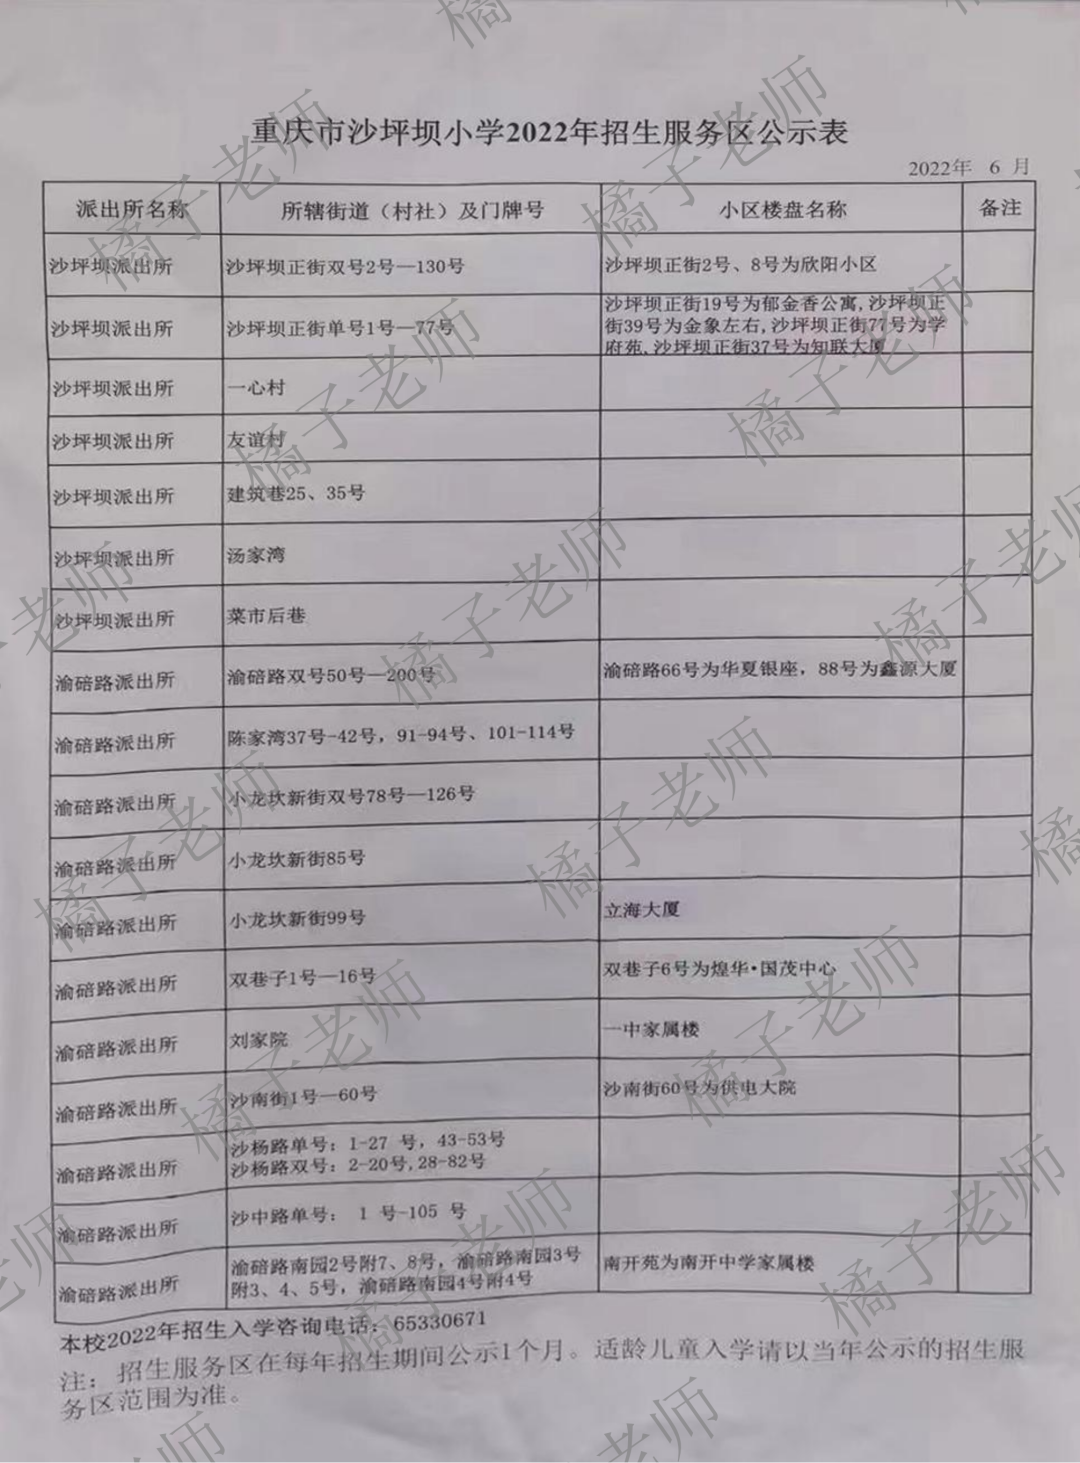 重庆市沙坪坝小学2022年招生服务区公示表
2022年 6 月
派出所名称 所辖街道（村社）及门牌号 小区楼盘名称 备注
沙坪坝派出所 沙坪坝正街双号2号—130号 沙坪坝正街2号、8号为欣阳小区
沙坪坝派出所 沙坪坝正街单号1号—77号 沙坪坝正街19号为郁金香公寓,沙坪坝正
街39号为金象左右,沙坪坝正街77号为学
府苑,沙坪坝正街37号为知联大厦
沙坪坝派出所 一心村
沙坪坝派出所 友谊村
沙坪坝派出所 建筑巷25、35号
沙坪坝派出所 汤家湾
沙坪坝派出所 菜市后巷
渝碚路派出所 渝碚路双号50号—200号 渝碚路66号为华夏银座，88号为鑫源大厦
渝碚路派出所 陈家湾37号-42号，91-94号、101-114号
渝碚路派出所 小龙坎新街双号78号—126号
渝碚路派出所 小龙坎新街85号
渝碚路派出所 小龙坎新街99号 立海大厦
渝碚路派出所 双巷子1号—16号 双巷子6号为煌华·国茂中心
渝碚路派出所 刘家院 一中家属楼
渝碚路派出所 沙南街1号—60号 沙南街60号为供电大院
渝碚路派出所 沙杨路单号：1-27 号，43-53号
沙杨路双号：2-20号,28-82号
渝碚路派出所 沙中路单号： 1 号-105 号
渝碚路派出所 渝碚路南园2号附7、8号，渝碚路南园3号
附3、4、5号，渝碚路南园4号附4号 南开苑为南开中学家属楼
本校2022年招生入学咨询电话：65330671
注： 招生服务区在每年招生期间公示1个月。适龄儿童入学请以当年公示的招生服
务区范围为准。
橘子老师